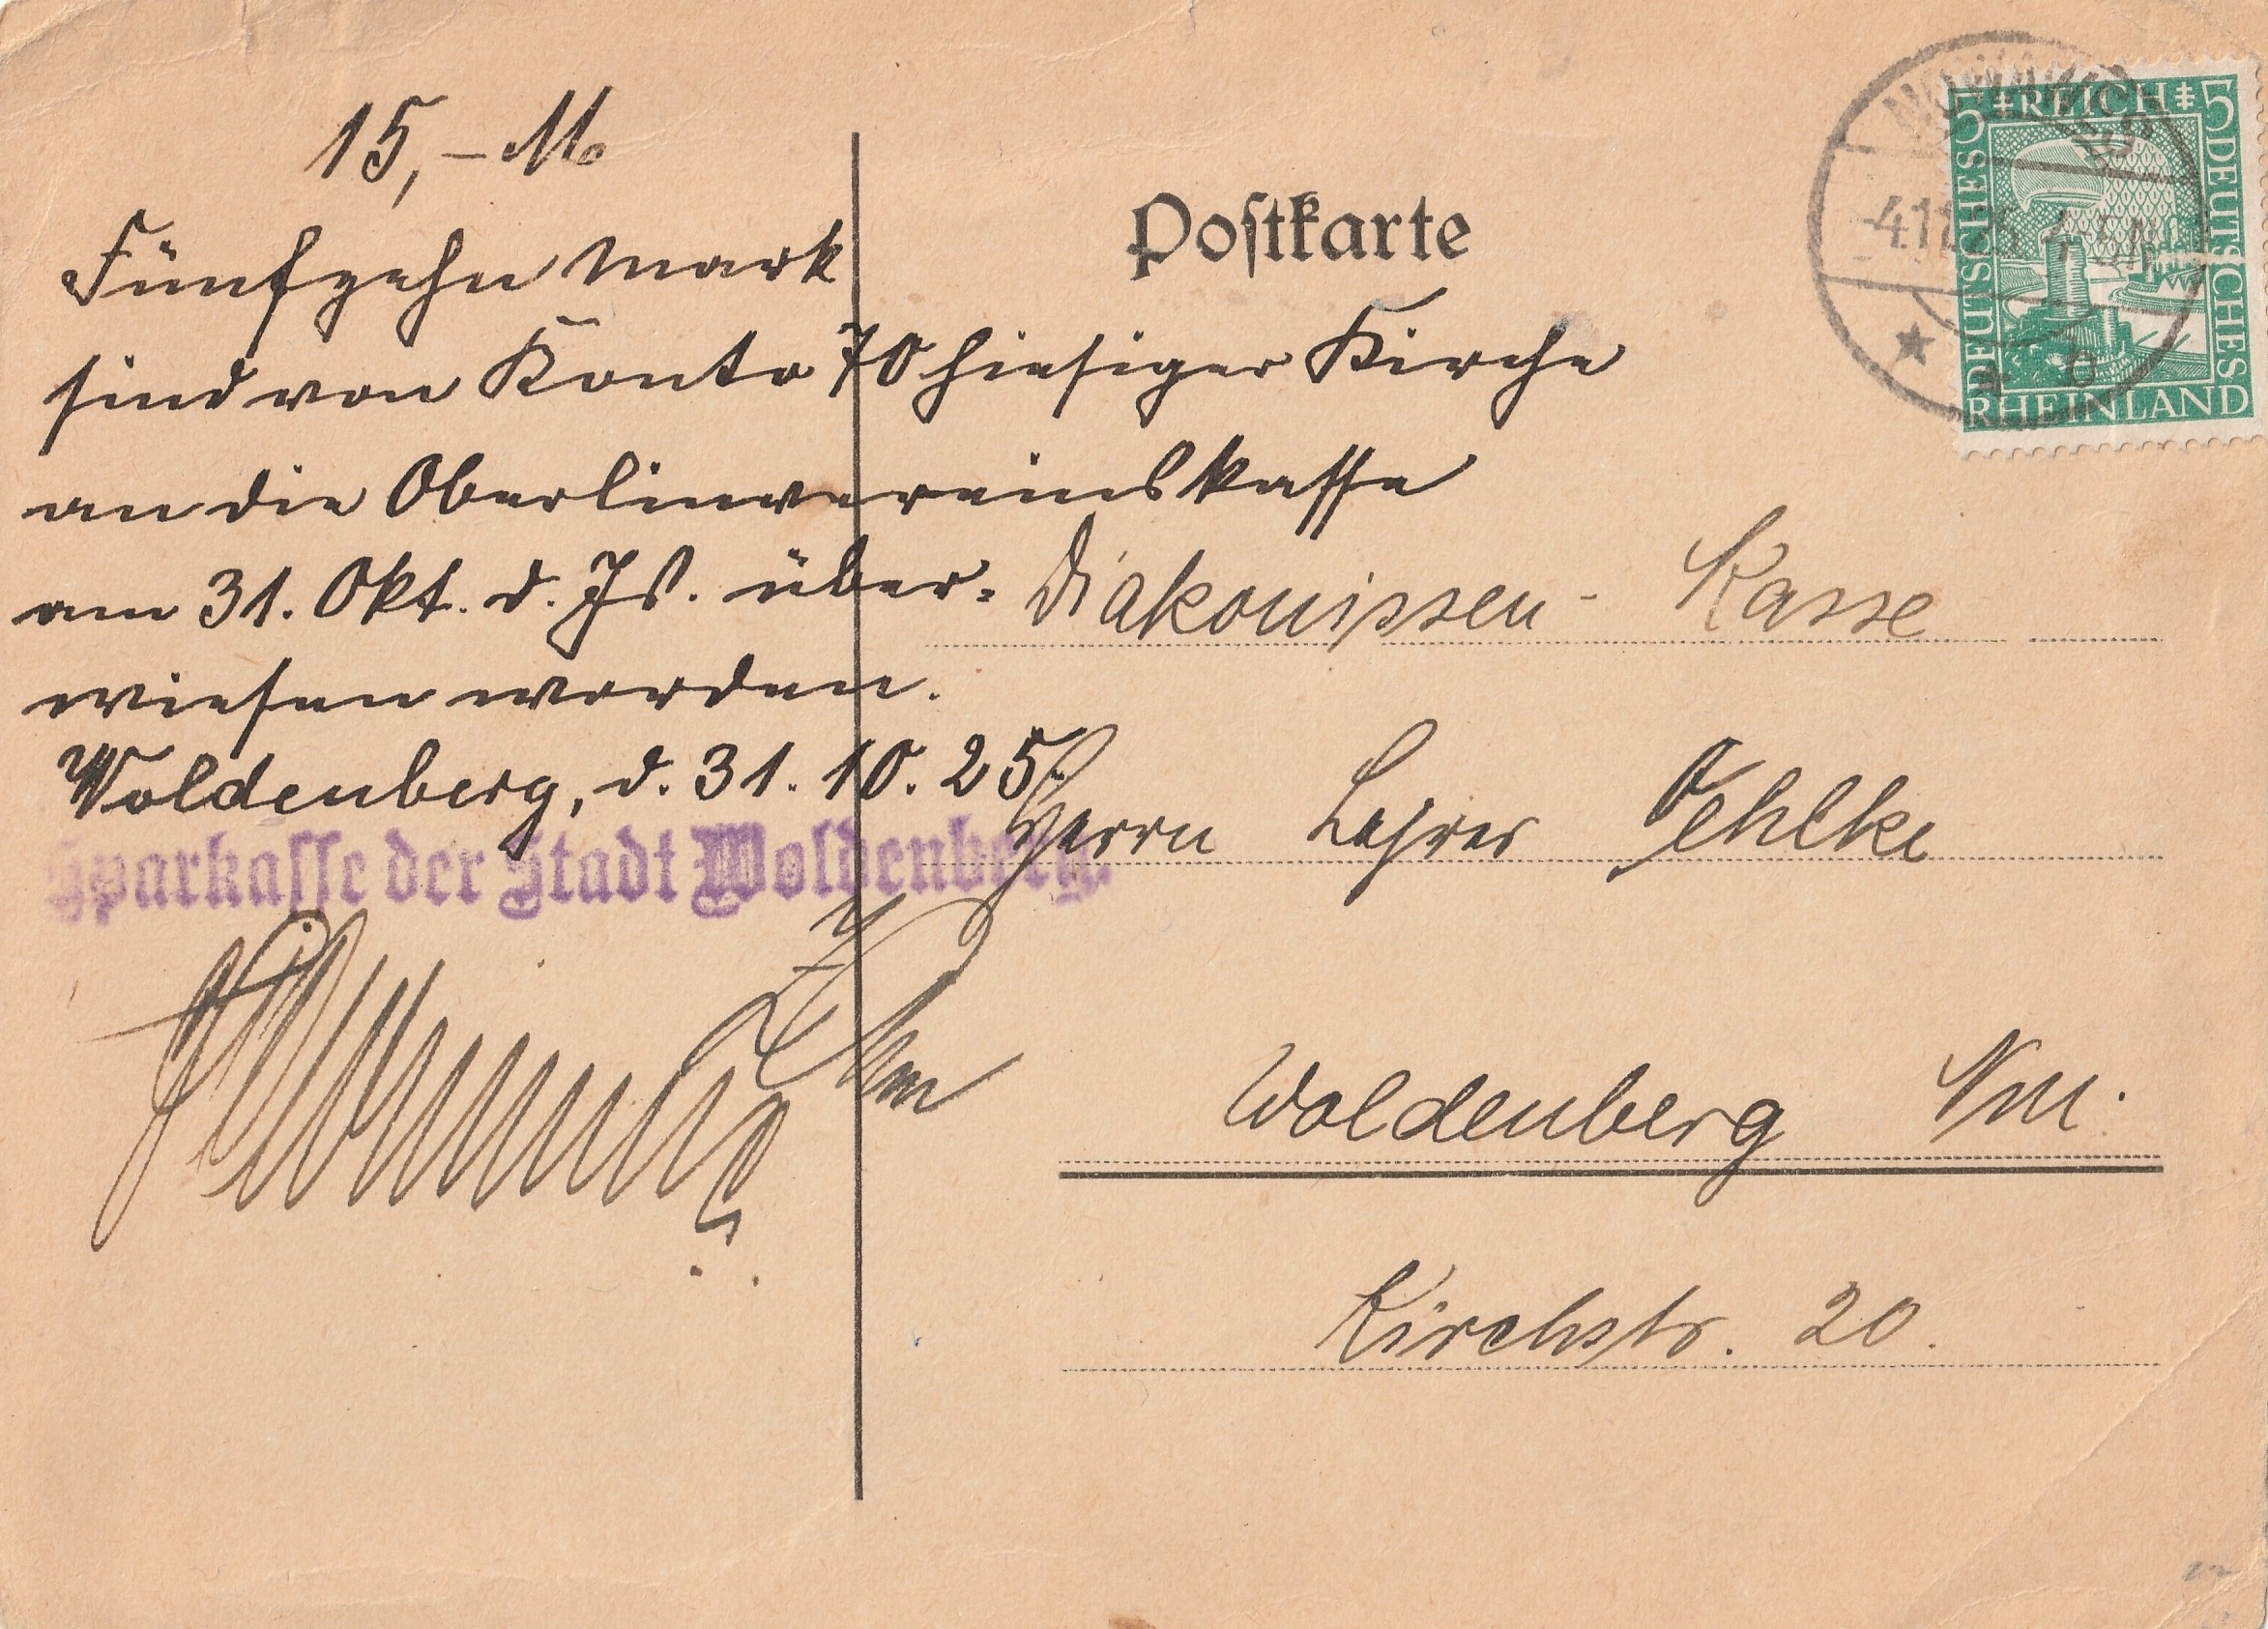 15,– M
Fünfzehn Mark
sind von Konto 70 hiesiger Kirche
an die Oberlinvereinskasse
am 31. Okt. d. Js. über-
wiesen worden.
Woldenberg, d. 31. 10. 25.
Sparkasse der Stadt Woldenberg.
Postkarte
5 REICH 5
DEUTSCHES
DEUTSCHES
RHEINLAND
Diakonissen- Kasse
Herrn Lehrer Oehlke
Woldenberg Nm.
Kirchstr. 20.